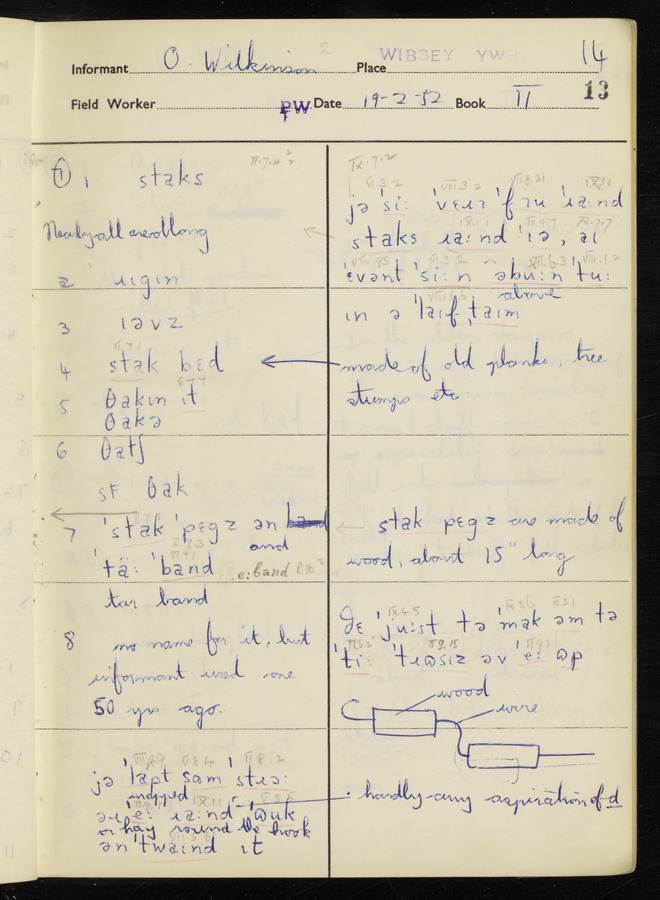 Informant O. Wilkinson 2 Place WIBSEY YWR 14
Field Worker PW Date 19-2-52 Book II 13
① 1 staks
Nearly all are oblong
2 ɹigin
3 iəvz
4 stak bɛd
5 θakin ɪt
θakə
6 θatʃ
sF θak
7 'stak 'pɛgz ən
and
'tä: 'band e:band
tar band
8 no name for it, but
informant used one
50 yrs ago.
jə 'lapt sam 'stɹɔ:
wrapped
ɔɹ 'e: ɹa:nd 'ʊuk
or hay round the hook
ən 'twaind ɪt
IX.7.2
jə 'si: 'vɛɹɪ 'fɪu 'ɹa:nd
staks ɹa:nd 'ɪə, aɪ
'ɛvənt 'si:n əbu:n 'tu:
above
ɪn ə 'laif,taɪm
made of old planks, tree
stumps etc.
stak pɛgz are made of
wood, about 15" long
ðɛ 'ju:st tə 'mak əm tə
'ti: 'tɹʊsɪz əv 'e: ʊp
wood
wire
hardly any aspiration of d